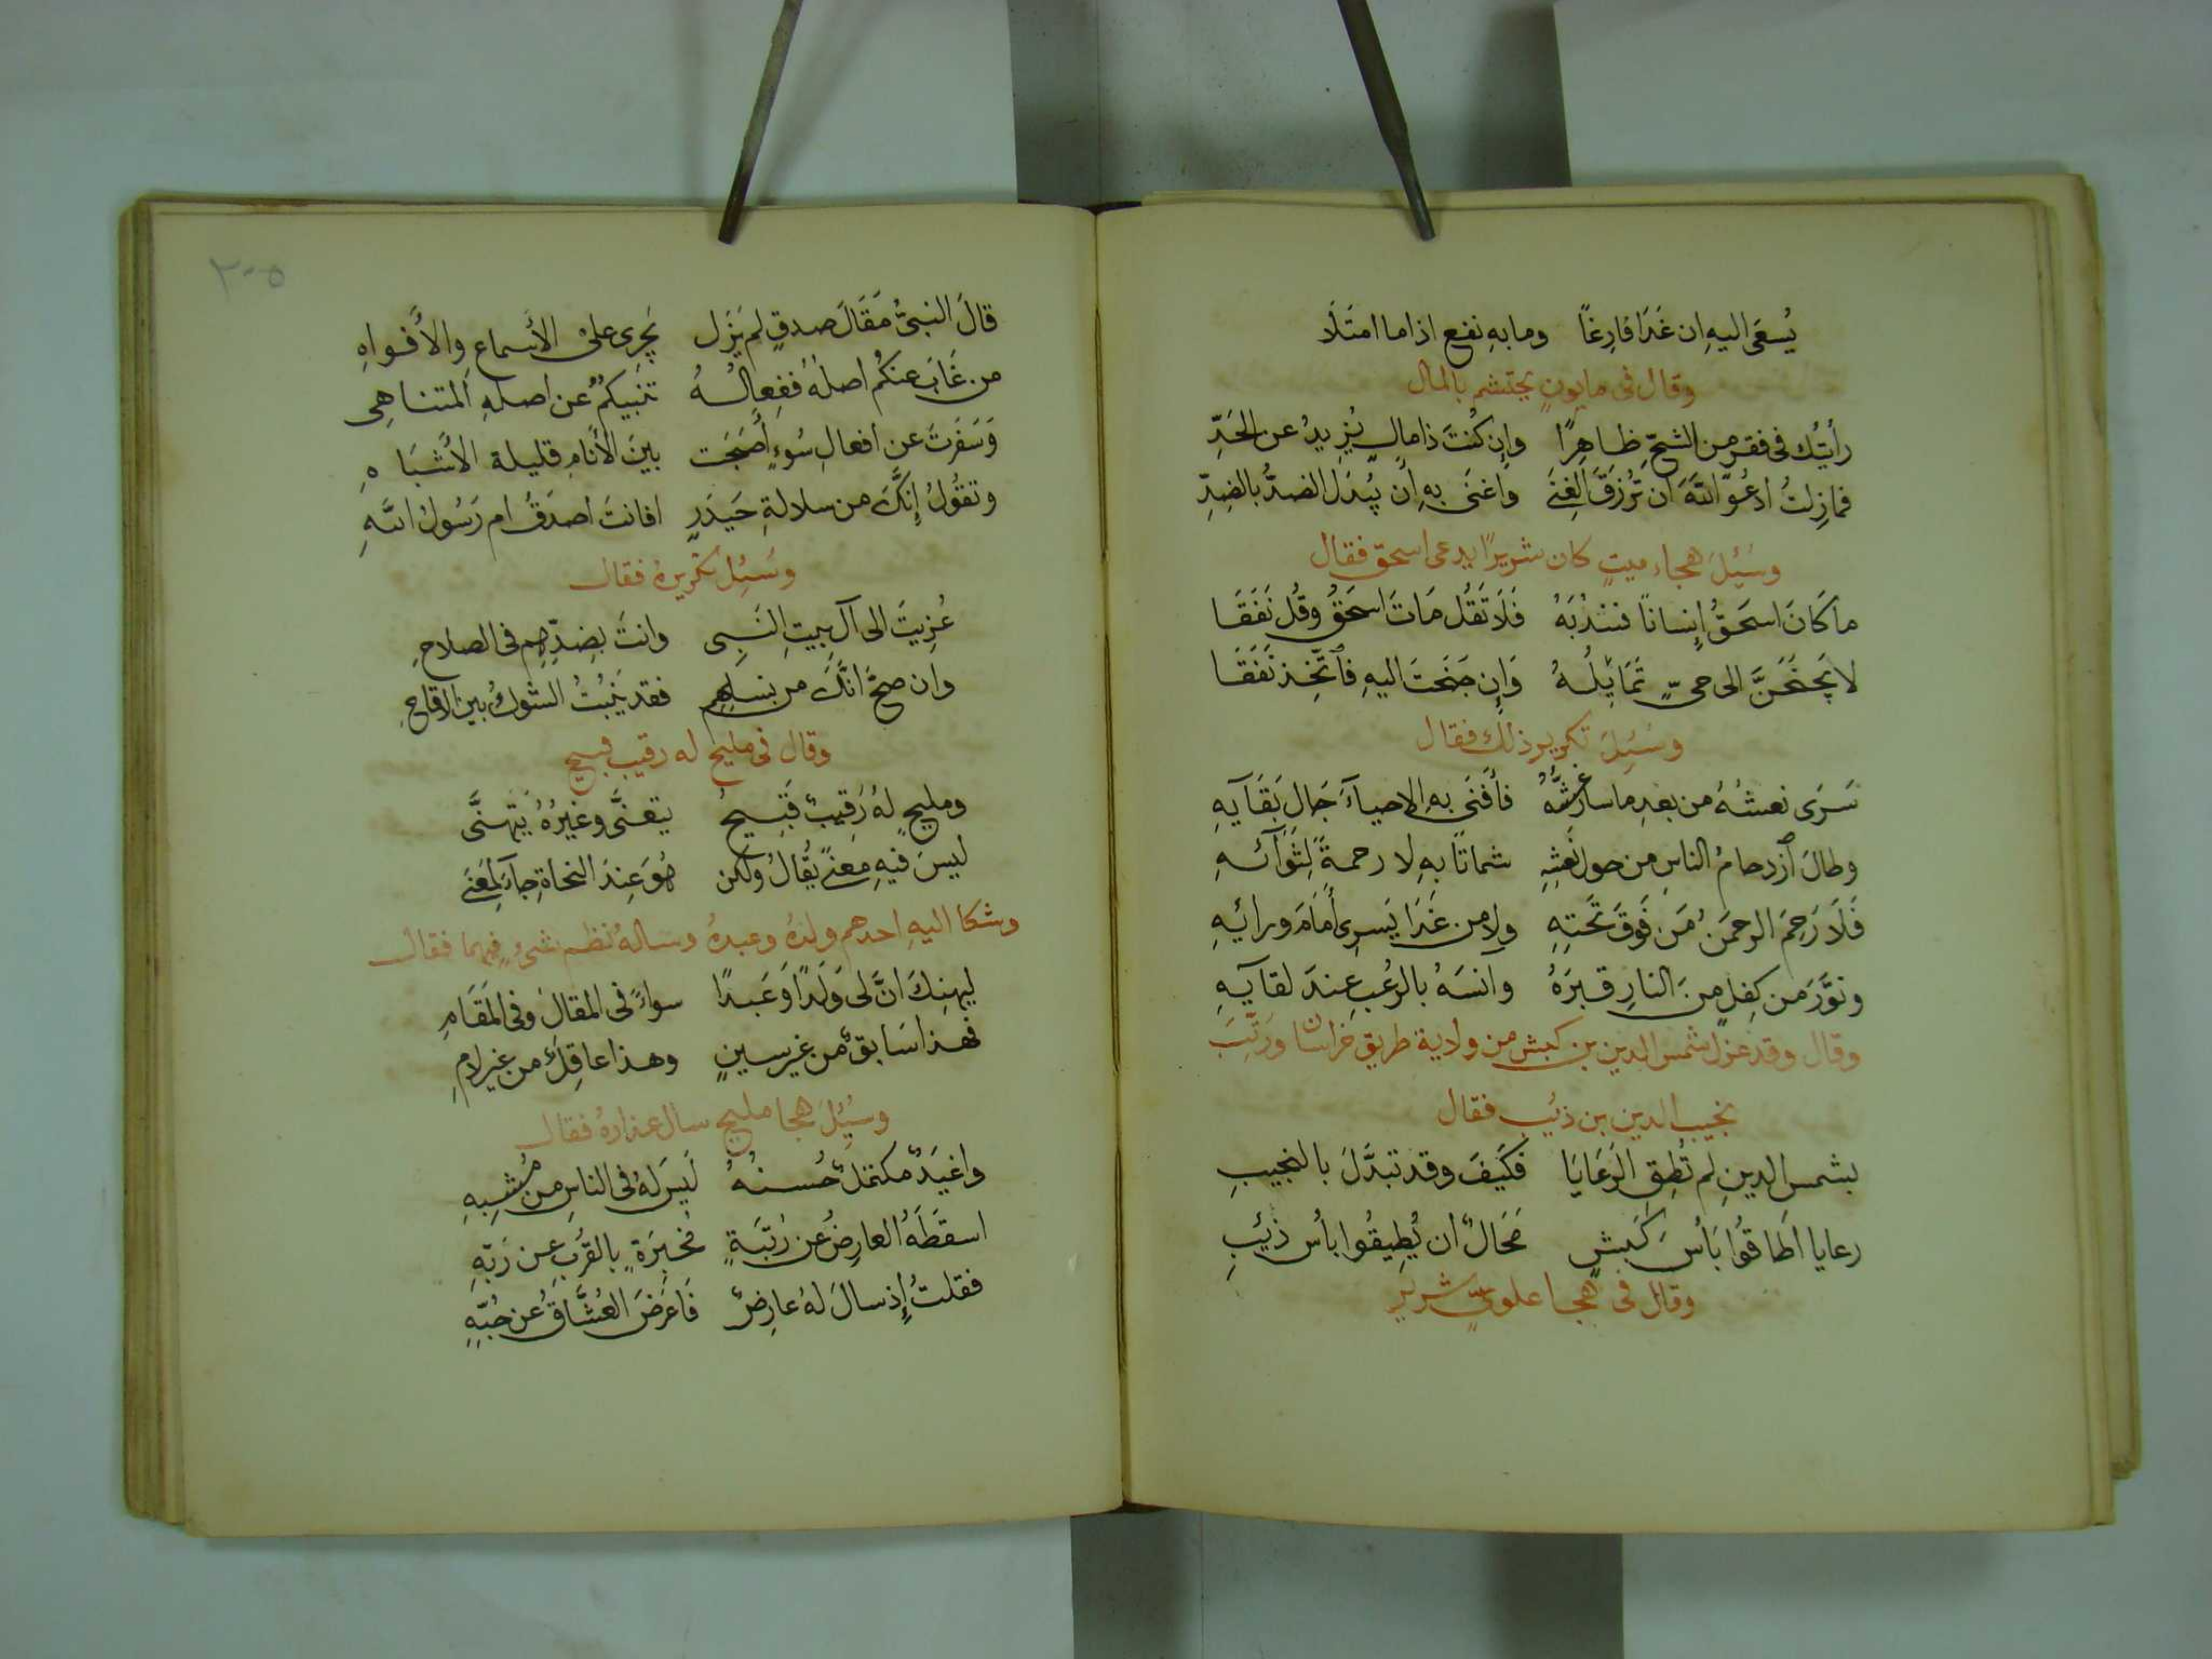 يُسعَى اليهِ ان غَدَا فارِغًا وما بهِ نفع اذا ما امتَلَا
وقال فى مابونٍ يحتشم بالمال
رأيتُك فى فقرٍ من الشحِّ ظاهِرًا وإن كُنتَ ذا مالٍ يَزيدُ عن الحَدِّ
فمازِلتُ ادعُو اللهَ ان تُرزَقَ الغِنَى واعنَى بهِ ان يُبدَل الضدُّ بالضِدِّ
وسُئِلَ هجاء ميتٍ كان شريرًا يدعى اسحق فقال
ما كَانَ اسحَقُ إنسانًا فنندُبَهُ فَلَا تَقُل مَاتَ اسحَقُ وقُل نَفَقَا
لا يَجنَحَنَّ الى حىٍّ تَمَايُلُهُ وَإن جَنَحتَ اليهِ فاتَّخِذ نَفَقَا
وسُئِلَ تكرير ذلك فقال
سَرَى نعشُهُ من بعدِ ما سار غشُّهُ فأَفنَى بهِ الاحياءَ حَال بَقَآيهِ
وطالَ ٱزدحامُ الناسِ من حول نَعشِهِ شماتًا بهِ لا رحمةً لِثَوَآئهِ
فَلَا رَحِمَ الرحمَنُ مَن فَوقَ تَحتِهِ ولا من غَدَا يَسرِى أَمَامَ ورائهِ
ونوَّرَ من كِفلٍ مِنَ النارِ قبرَهُ وانسَهُ بالرُعبِ عِندَ لقآيهِ
وقال وقد عزل شمس الدين بن كبش من ولاية طريق خراسان ورُتِّبَ
نجيب الدين بن ذئب فقال
بشمسِ الدينِ لم تُطِقِ الرَعَايَا فكَيفَ وقد تبدَّلَ بالنجيبِ
رعايا اَطَاقُوا بَأسَ كَبشٍ مَحَالٌ ان يُطِيقُوا بأس ذَئبِ
وقال فى هجا علوىٍّ شرير
٢٠٥
قالَ النبىُّ مَقَالَ صدقٍ لم يَزَل يَجرِى على الأَسماعِ والأَفواهِ
من غَابَ عنكُم اصلهُ ففِعالُهُ تنبيكمُ عن اصلهِ المتناهِى
وَسَفَرتَ عن افعالِ سُوءٍ أَصبَحَت بينَ الأَنَامِ قليلة الأَشبَاهِ
وتقُولُ إنَّكَ من سلالةِ حَيدَرٍ افانتَ اصدَقُ ام رَسُولُ اللهِ
وسُئِل تكريرهُ فقال
عُزِيتَ الى آل بيتِ النَبِى وانتَ بضِدِّهِم فى الصلاحِ
وان صحَّ انَّكَ من نسلِهِم فقد يَنبُتُ الشوكُ بين الاقاحِ
وقال فى مليح له رقيب قبيح
ومليحٍ لهُ رَقِيبٌ قَبِيحُ يتعنَّى وغيرُهُ يتهنَّى
ليسَ فيهِ مَعنًى يُقالُ ولكن هُوَ عِندَ النحاةِ جآءَ لِمَعنَى
وشكا اليهِ احدهم ولدهُ وعبدهُ وسالهُ نظم شىءٍ فيهما فقال
ليهنِكَ انَّ لى وَلَدًا وَعَبدًا سواءً فى المقال وفى المَقَامِ
فهذا سَابقٌ من غير سينٍ وهذا عاقِلٌ من غير لامِ
وسُئِلَ هجا مليح سال عذارهُ فقال
واغيَدٌ مكتملٌ حُسنُهُ لَيسَ لهُ فى الناسِ من مُشبِهِ
اسقطَهُ العارِضُ عن رُتبَةٍ مُخبِرَةٍ بالقُربِ عن رَبّهِ
فقلتُ إِذ سالَ لهُ عارِضٌ فَاعرَضَ العُشَّاقُ عن حُبّهِ